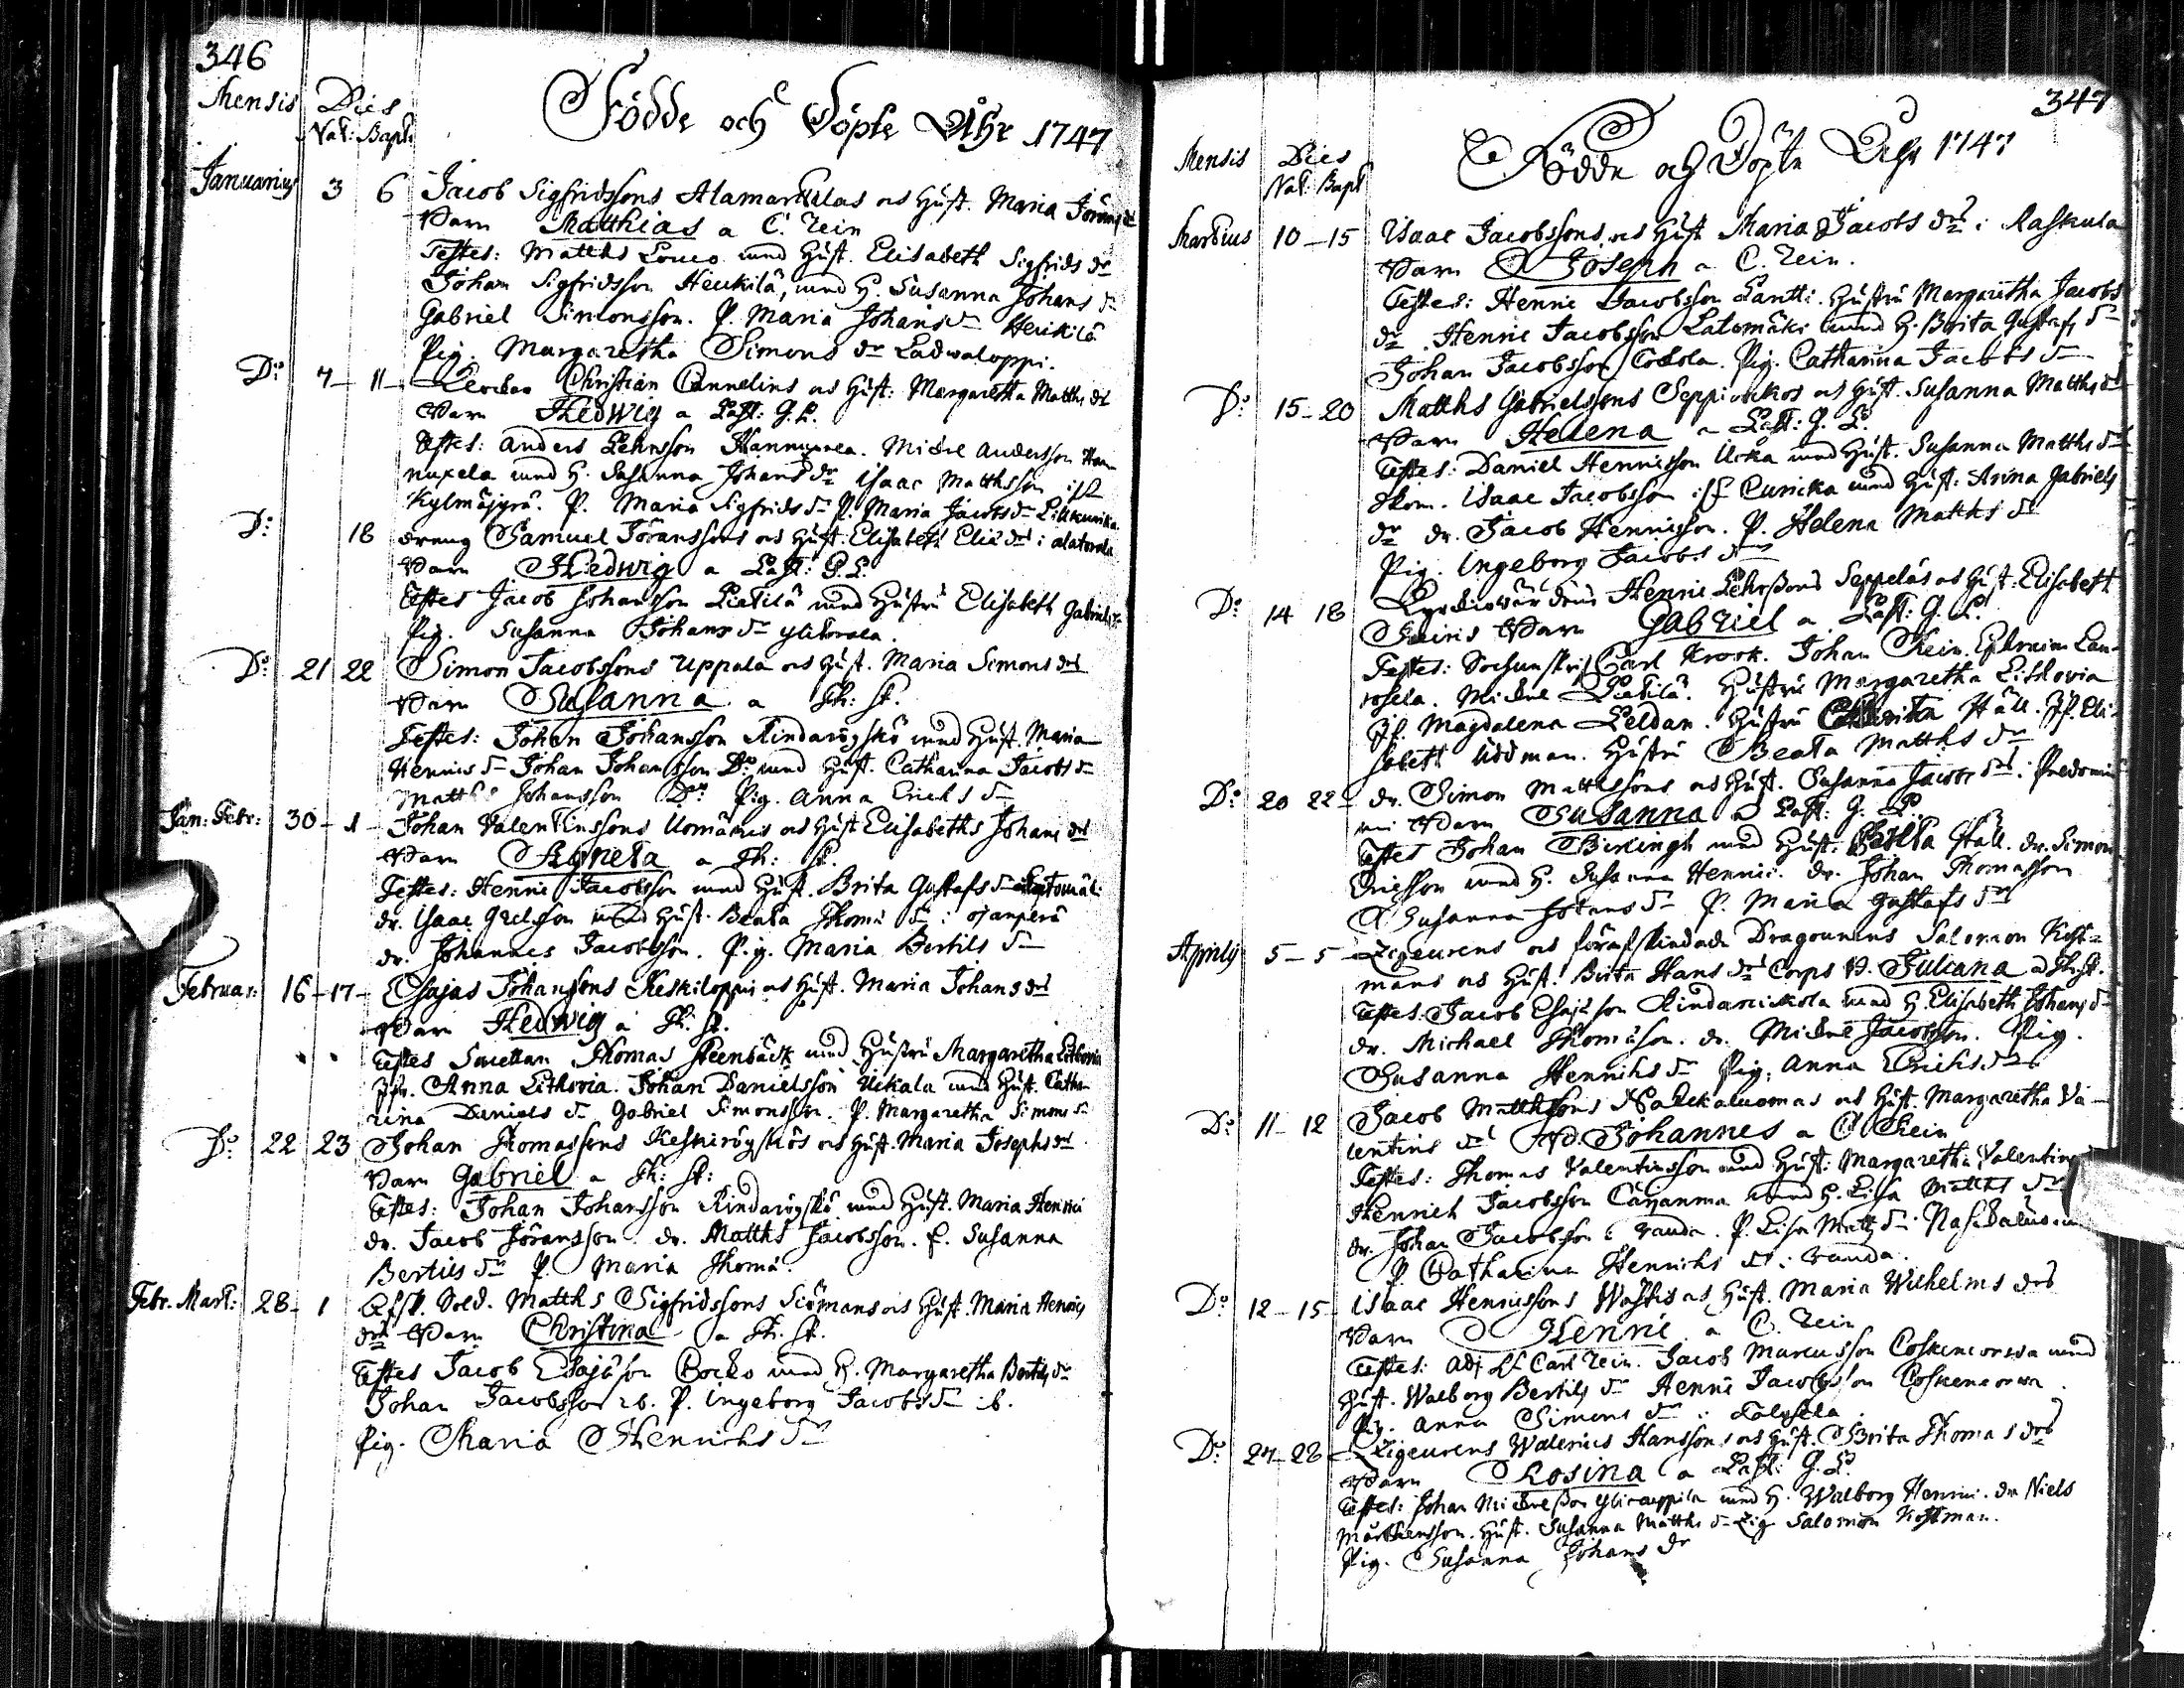 346
Mensis Dies
Nat: Bapt:
Födde och Döpte Åhr 1747
Januarius 3 6 Jacob Sigfridssons Alamarkulas os Hust. Maria Jörans dr
Barn Matthias a C. Rein
Testes: Matths Louco med Hust. Elisabeth Sigfrids dr
Johan Sigfridsson Heickilä, med H. Susanna Johans dr
Gabriel Simonsson. P. Maria Johans dr Heickilä
Pig. Margaretha Simons dr Ladwaloppi.
Do 7 - 11 - Christian Cannelins os Hust: Margaretha Matths dr
Barn Hedwig a Past: G. L.
Testes: Anders Michel Andersson Han-
nuxela med H. Susanna Johans dr Isaac Matthsson
Kylmäjyrä. P. Maria Sigfrids dr P. Maria Jacobs dr
Do 18 dreng Samuel Jöranssons os Hust. Elisabeth Eliæ dr i alatorola
Barn Hedwig a Past: G. L.
Testes Jacob Johansson Pietilä med Hustru Elisabeth Gabriels dr
Pig. Susanna Johans dr ylitorola.
Do 21 22 Simon Jacobssons Uppala os Hust. Maria Simons dr
Barn Susanna a Th: St.
Testes: Johan Johansson Rindaröyskö med Hust. Maria
Hennics dr Johan Johansson Do med Hust. Catharina Jacobs dr
Matths Johansson Do Pig. Anna Erichs dr
Jan: Febr: 30 - 1 - Johan Valentinssons Uomäkis os Hust Elisabeths Johans dr
Barn Agneta a Th: St.
Testes: Henric Jacobsson med Hust. Brita Gustafs dr
dr. Isaac Grelsson med Hust. Beata Thomæ dr i ojanperä
dr. Johannes Jacobsson. Pig. Maria Bertils dr
Februar: 16 - 17 - Esajas Johanssons Keskiloppis os Hust. Maria Johans dr
Barn Hedwig a Th: St.
Testes Thomas Steenbäck med Hustru Margaretha Lithovia
Jfr. Anna Lithovia. Johan Danielsson Uckala med Hust. Catha
rina Daniels dr Gabriel Simonsson. P. Margaretha Simons dr
Do 22 23 Johan Thomassons Keskiröyskös os Hust. Maria Josephs dr
Barn Gabriel a Th: St:
Testes: Johan Johansson Rindaröyskö med Hust. Maria Hennici
dr. Jacob Jöransson. dr. Matths Jacobsson. P. Susanna
Bertils dr P. Maria Thomæ.
Febr. Mart: 28 - 1 Sold. Matths Sigfridssons os Hust. Maria Hennics
dr Barn Christina a Th. St.
Testes Jacob Esajæson Cocko med H. Margaretha Bertils dr
Johan Jacobsson ib. P. Ingeborg Jacobs dr ib.
Pig. Maria Henrichs dr
347
Mensis Dies
Nat: Bapt
Födde och Döpte Åhr 1747
Martius 10 - 15 Isaac Jacobssons os Hust Maria Jacobs dr i Raskula
Barn Joseph a C. Rein.
Testes: Henric Jacobsson Lantti. Hustru Margaretha Jacobs
dr. Henric Jacobsson Latomäki med H. Brita Gustafs dr
Johan Jacobsson Cockola. Pig. Catharina Jacobs dr
Do 15 - 20 Matths Gabrielssons os Hust. Susanna Matths dr
Barn Helena a Past: G. L.
Testes: Daniel Henricsson Ucka med Hust. Susanna Matths dr
Isaac Jacobsson Cunicka med Hust: Anna Gabriels
dr dr. Jacob Henricsson. P. Helena Matths dr
Pig. Ingeborg Jacobs dr
Do 14 18 Kyrckiowärdens Henric Seppeläs os Hust. Elisabeth
Barn Gabriel a Past: G. L.
Testes: Carl Krook. Johan Rein. Ephraim Lau-
rosela. Michel Pietilä. Hustru Margaretha Lithovia
Jf. Magdalena Peldan. Hustru Ståll. Jf. Eli-
sabeth Uddman. Hustru Beata Matths dr
Do 20 22 - dr. Simon Mattssons os Hust. Susanna Jacobs dr i
Barn Susanna a Past: G. L.
Testes Johan med Hust. Ståll. dr. Simon
Ericsson med H. Susanna Hennici. dr. Johan Thomasson
Susanna Johans dr P. Maria Gustafs dr
Aprilis 5 - 5 Zigeurens os förafskiedade Dragounens Salomon Kost-
mans os Hust. Brita Hans dr Corps B. Juliana a Th. St.
Testes. Jacob Esajæson Rindanickola med H. Elisabeth Johans dr
dr. Michael Thomæson. dr. Michel Jacobsson. Pig.
Susanna Henrichs dr Pig. Anna Erichs dr
Do 11 - 12 Jacob Matthsons os Hust. Margaretha Va-
lentins dr Johannes a C Rein
Testes: Thomas Valentinsson med Hust: Margaretha Valentins
Henrich Jacobsson med H. Lisa Matths dr
dr. Johan Jacobsson i randa. P. Lisa Matts dr
P. Catharina Henrichs dr i randa.
Do 12 - 15 - Isaac Henricssons os Hust. Maria Wilhelms dr
Barn Henric a C. Rein
Testes: Adj Carl Rein. Jacob Marcusson Coskencorwa med
Hust. Walborg Bertils dr Henric Jacobsson Coskencorwa
Pig. Anna Simons dr
Do 27 - 28 - Zigeurens Walerius Hanssons os Hust. Brita Thomas dr
Barn Rosina a Past: G. L.
Testes: Johan Michelsson med H. Walborg Hennici. dr Niels
Mårtensson. Hust. Susanna Matths dr Zig. Salomon Kostman.
Pig. Susanna Johans dr